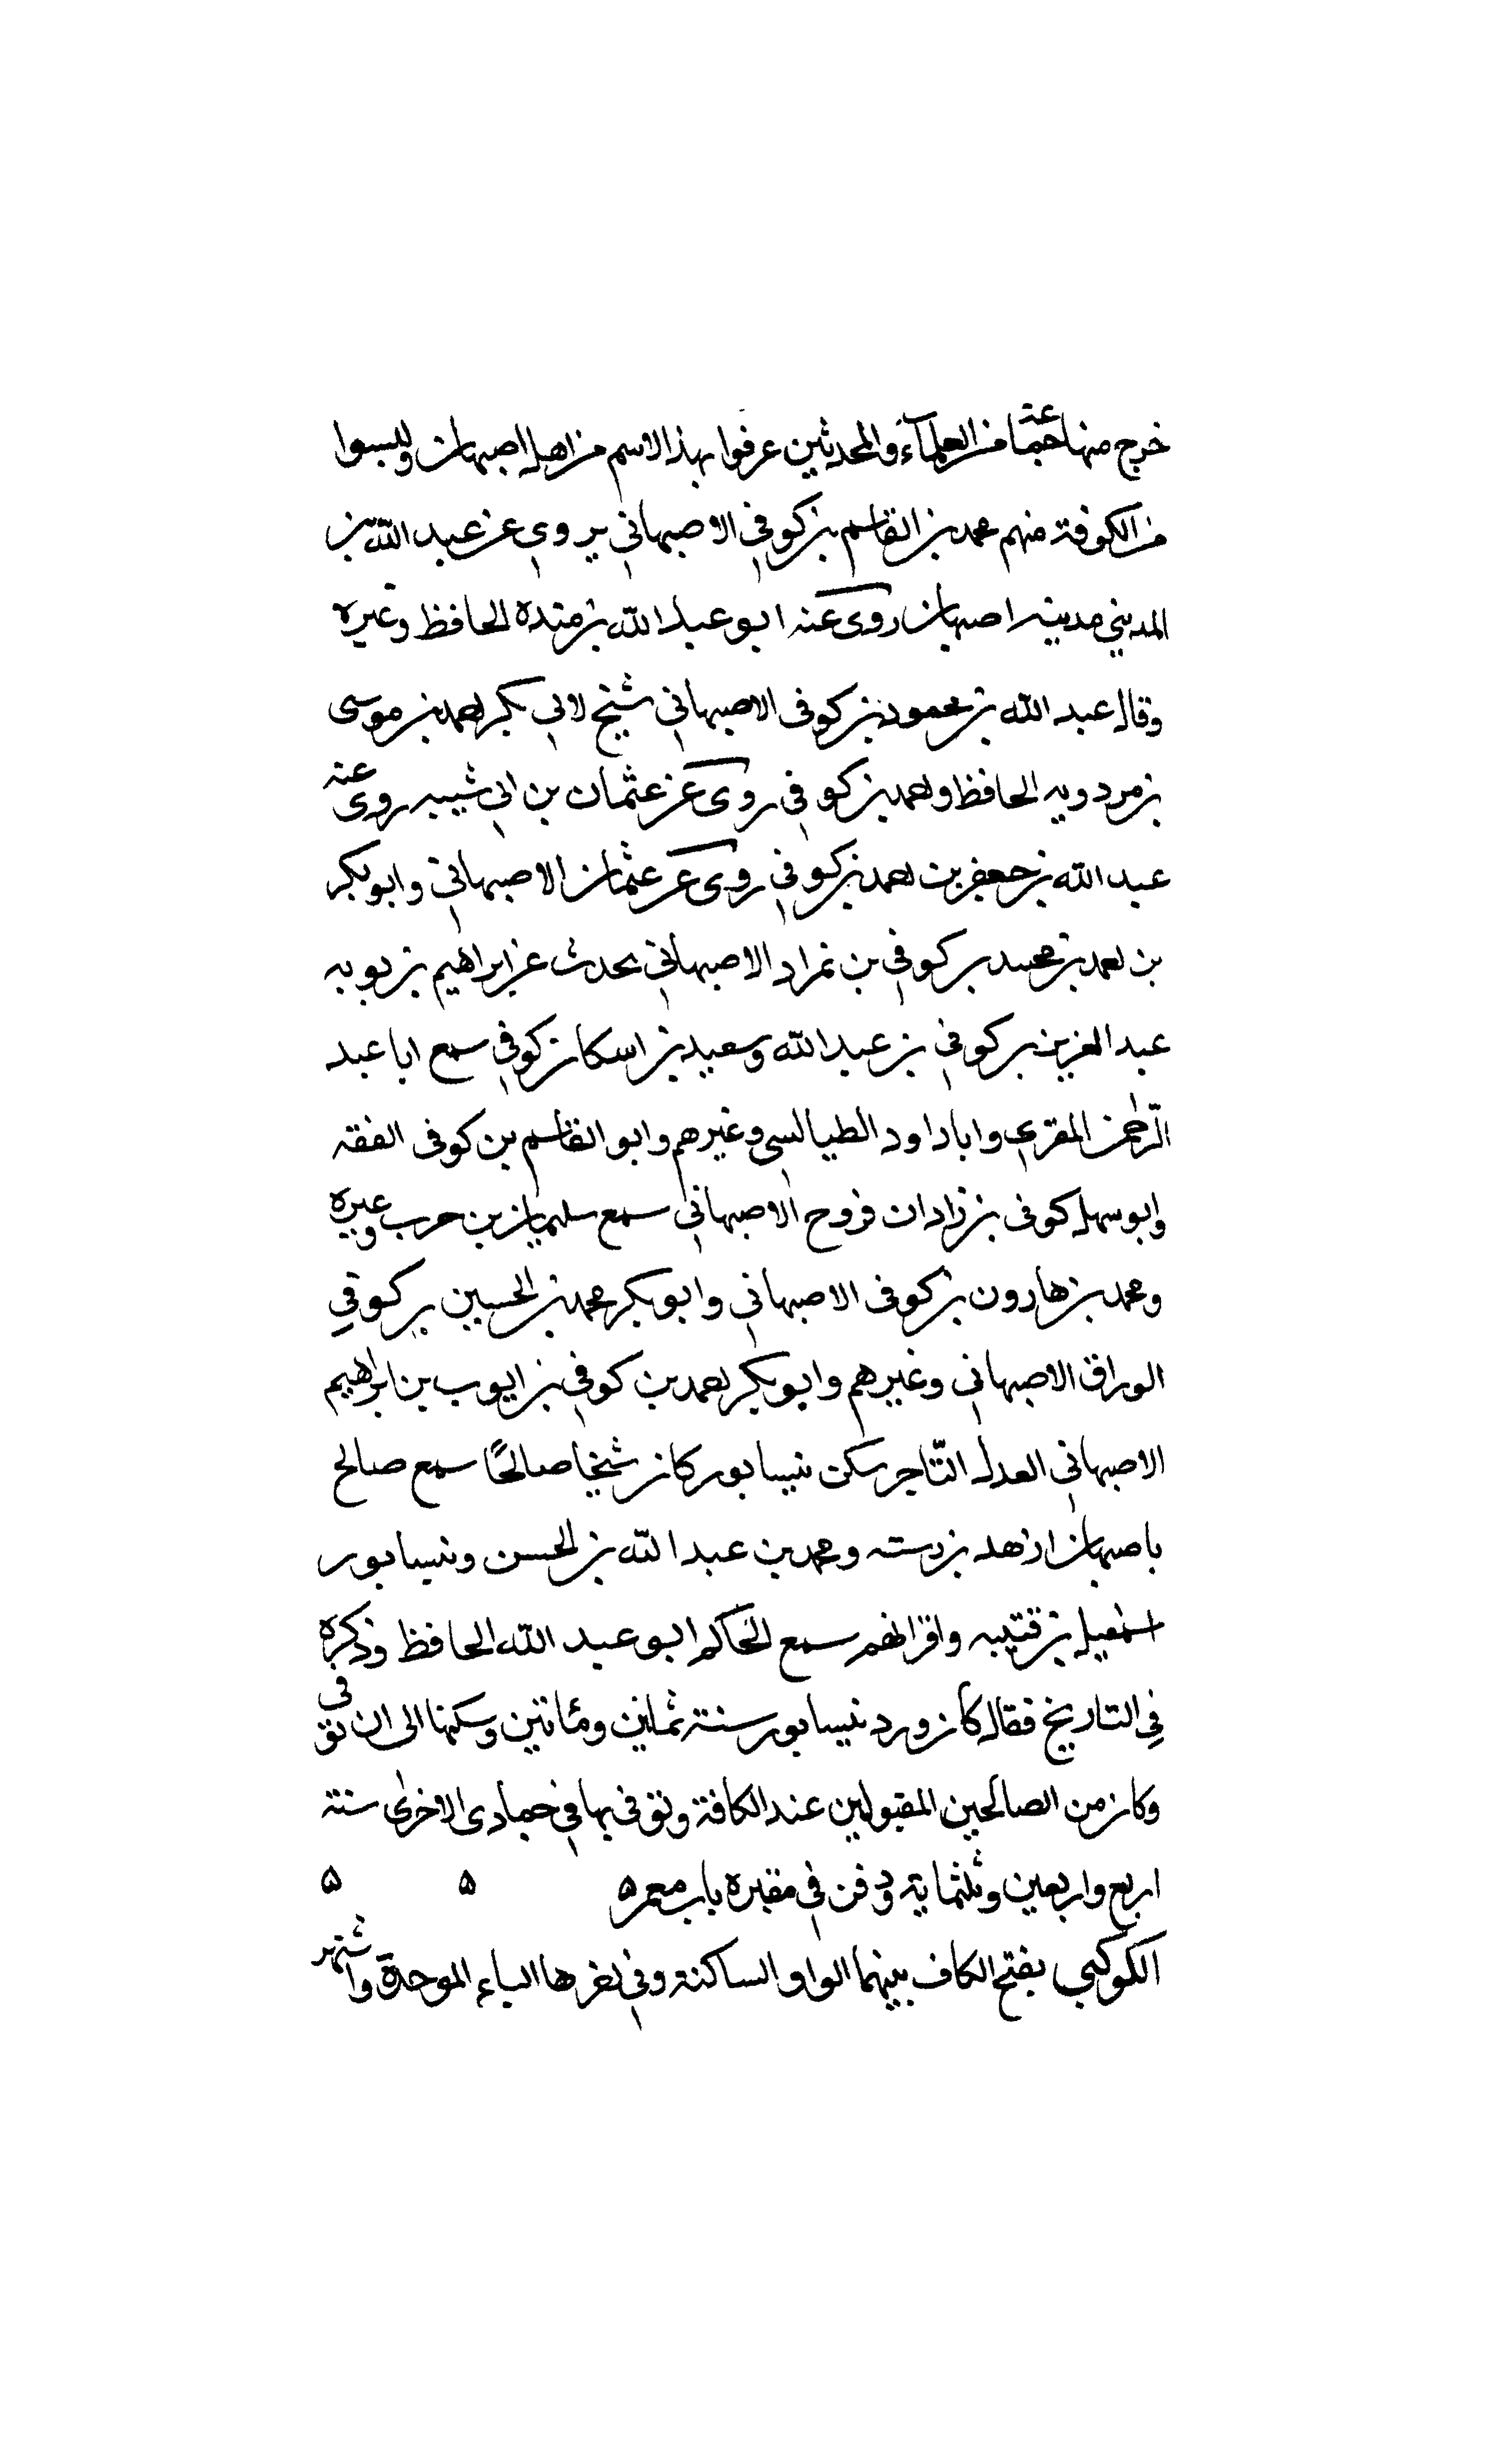 خرج منها جماعة من العلماء والمحدثين عرفوا بهذا الاسم من اهل اصبهان وليسوا
من الكوفة منهم محمد بن القاسم بن كوفي الاصبهاني يروي عن عبد الله بن
المديني مدينه اصبهان روى عنه ابو عبد الله بن منده الحافظ وغيره
وقال عبد الله بن محمود بن كوفى الاصبهاني شيخ لابي بكر احمد بن موسى
بن مردويه الحافظ واحمد بن كوفي روى عن عثمان بن ابي شيبه روى عنه
عبد الله بن جعفر بن احمد بن كوفي روى عن عثمان الاصبهاني وابو بكر
بن احمد بن محمد بن كوفي بن نمراد الاصبهاني يحدث عن ابراهيم بن بويه
عبد العزيز بن كوفي بن عبد الله وسعيد بن اسكان كوفي سمع ابا عبد
الرحمن المقري وابا داود الطيالسي وغيرهم وابو القاسم بن كوفى الفقه
وابو سهل كوفى بن زادان فروح الاصبهاني سمع سليمان بن حرب وغيره
ومحمد بن هارون بن كوفى الاصبهاني وابو بكر محمد بن الحسين بن كوفي
الوراق الاصبهاني وغيرهم وابو بكر احمد بن كوفي بن ايوب بن ابراهيم
الاصبهاني العدل التاجر سكن نيسابور كان شيخا صالحا سمع صالح
باصبهان ازهد بن رسته ومحمد بن عبد الله بن الحسن ونيسابور
اسمعيل بن قتيبه واقرانهم سمع الحاكم ابو عبد الله الحافظ وذكره
في التاريخ فقال كان ورد نيسابور سنة ثمانين ومائتين وسكنها الى ان توفى
وكان من الصالحين المقبولين عند الكافة وتوفى بها في جمادى الاخرى سنة
اربع واربعين وثلثماية ودفن في مقبره باب معمر ۵ ۵ ۵
الكوكبي بفتح الكاف بينهما الواو الساكنة وفي اخرها الباء الموحدة واشتهر